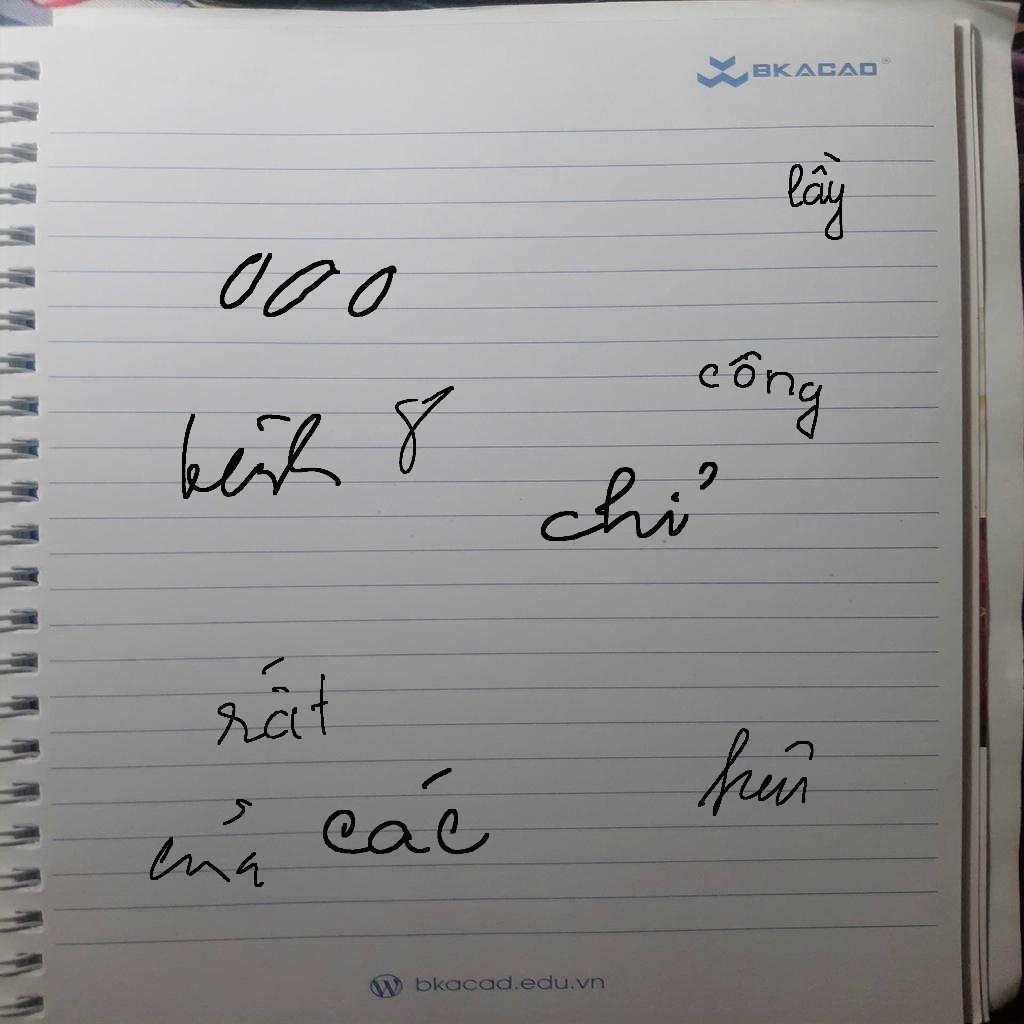 BKACAD
lầy
000
công
8
chỉ
rất
của các
bkacad.edu.vn